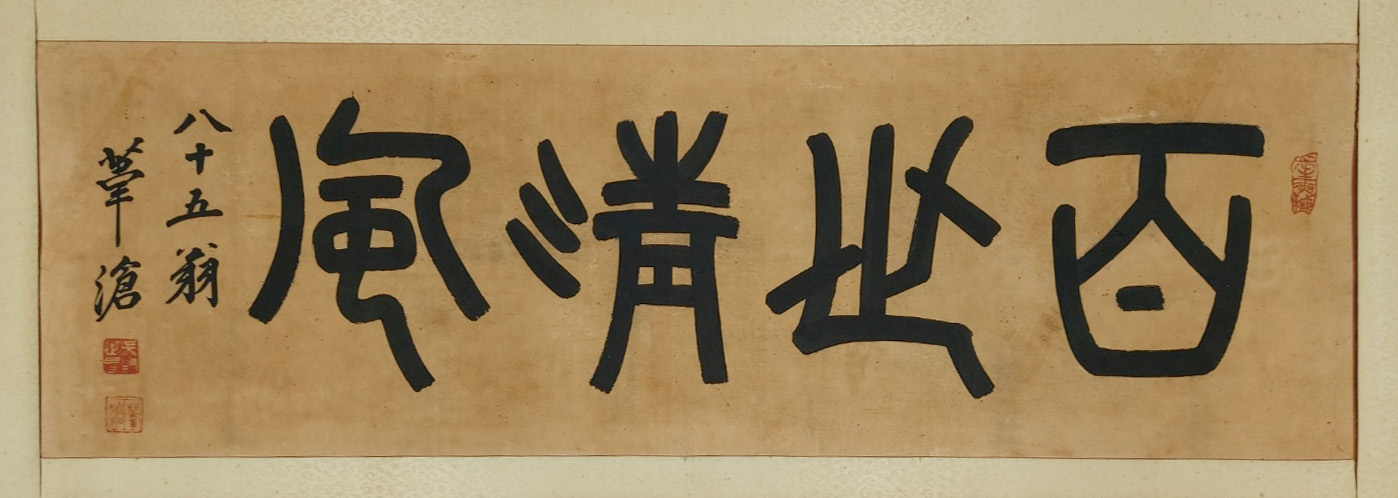 百世清風
八十五翁
葦滄